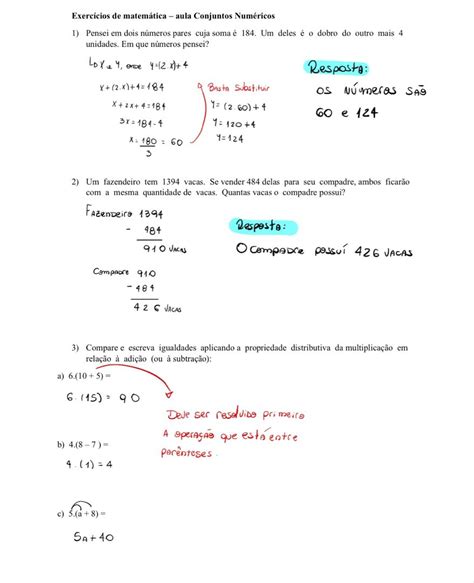 Exercícios de matemática – aula Conjuntos Numéricos
1) Pensei em dois números pares cuja soma é 184. Um deles é o dobro do outro mais 4
unidades. Em que números pensei?
↳ X e Y, onde Y=(2.x)+4
x+(2.x)+4=184
x+2x+4=184
3x=184-4
x=180=60
3
Basta substituir
Y=(2.60)+4
Y=120+4
Y=124
Resposta:
Os números são
60 e 124
2) Um fazendeiro tem 1394 vacas. Se vender 484 delas para seu compadre, ambos ficarão
com a mesma quantidade de vacas. Quantas vacas o compadre possui?
Fazendeiro 1394
- 484
910 vacas
Compadre 910
- 484
426 vacas
Resposta:
O compadre possuí 426 vacas
3) Compare e escreva igualdades aplicando a propriedade distributiva da multiplicação em
relação à adição (ou à subtração):
a) 6.(10 + 5) =
6.(15) = 90
Deve ser resolvido primeiro
A operação que está entre
parênteses.
b) 4.(8 – 7) =
4.(1) = 4
c) 5.(a + 8) =
5a+40